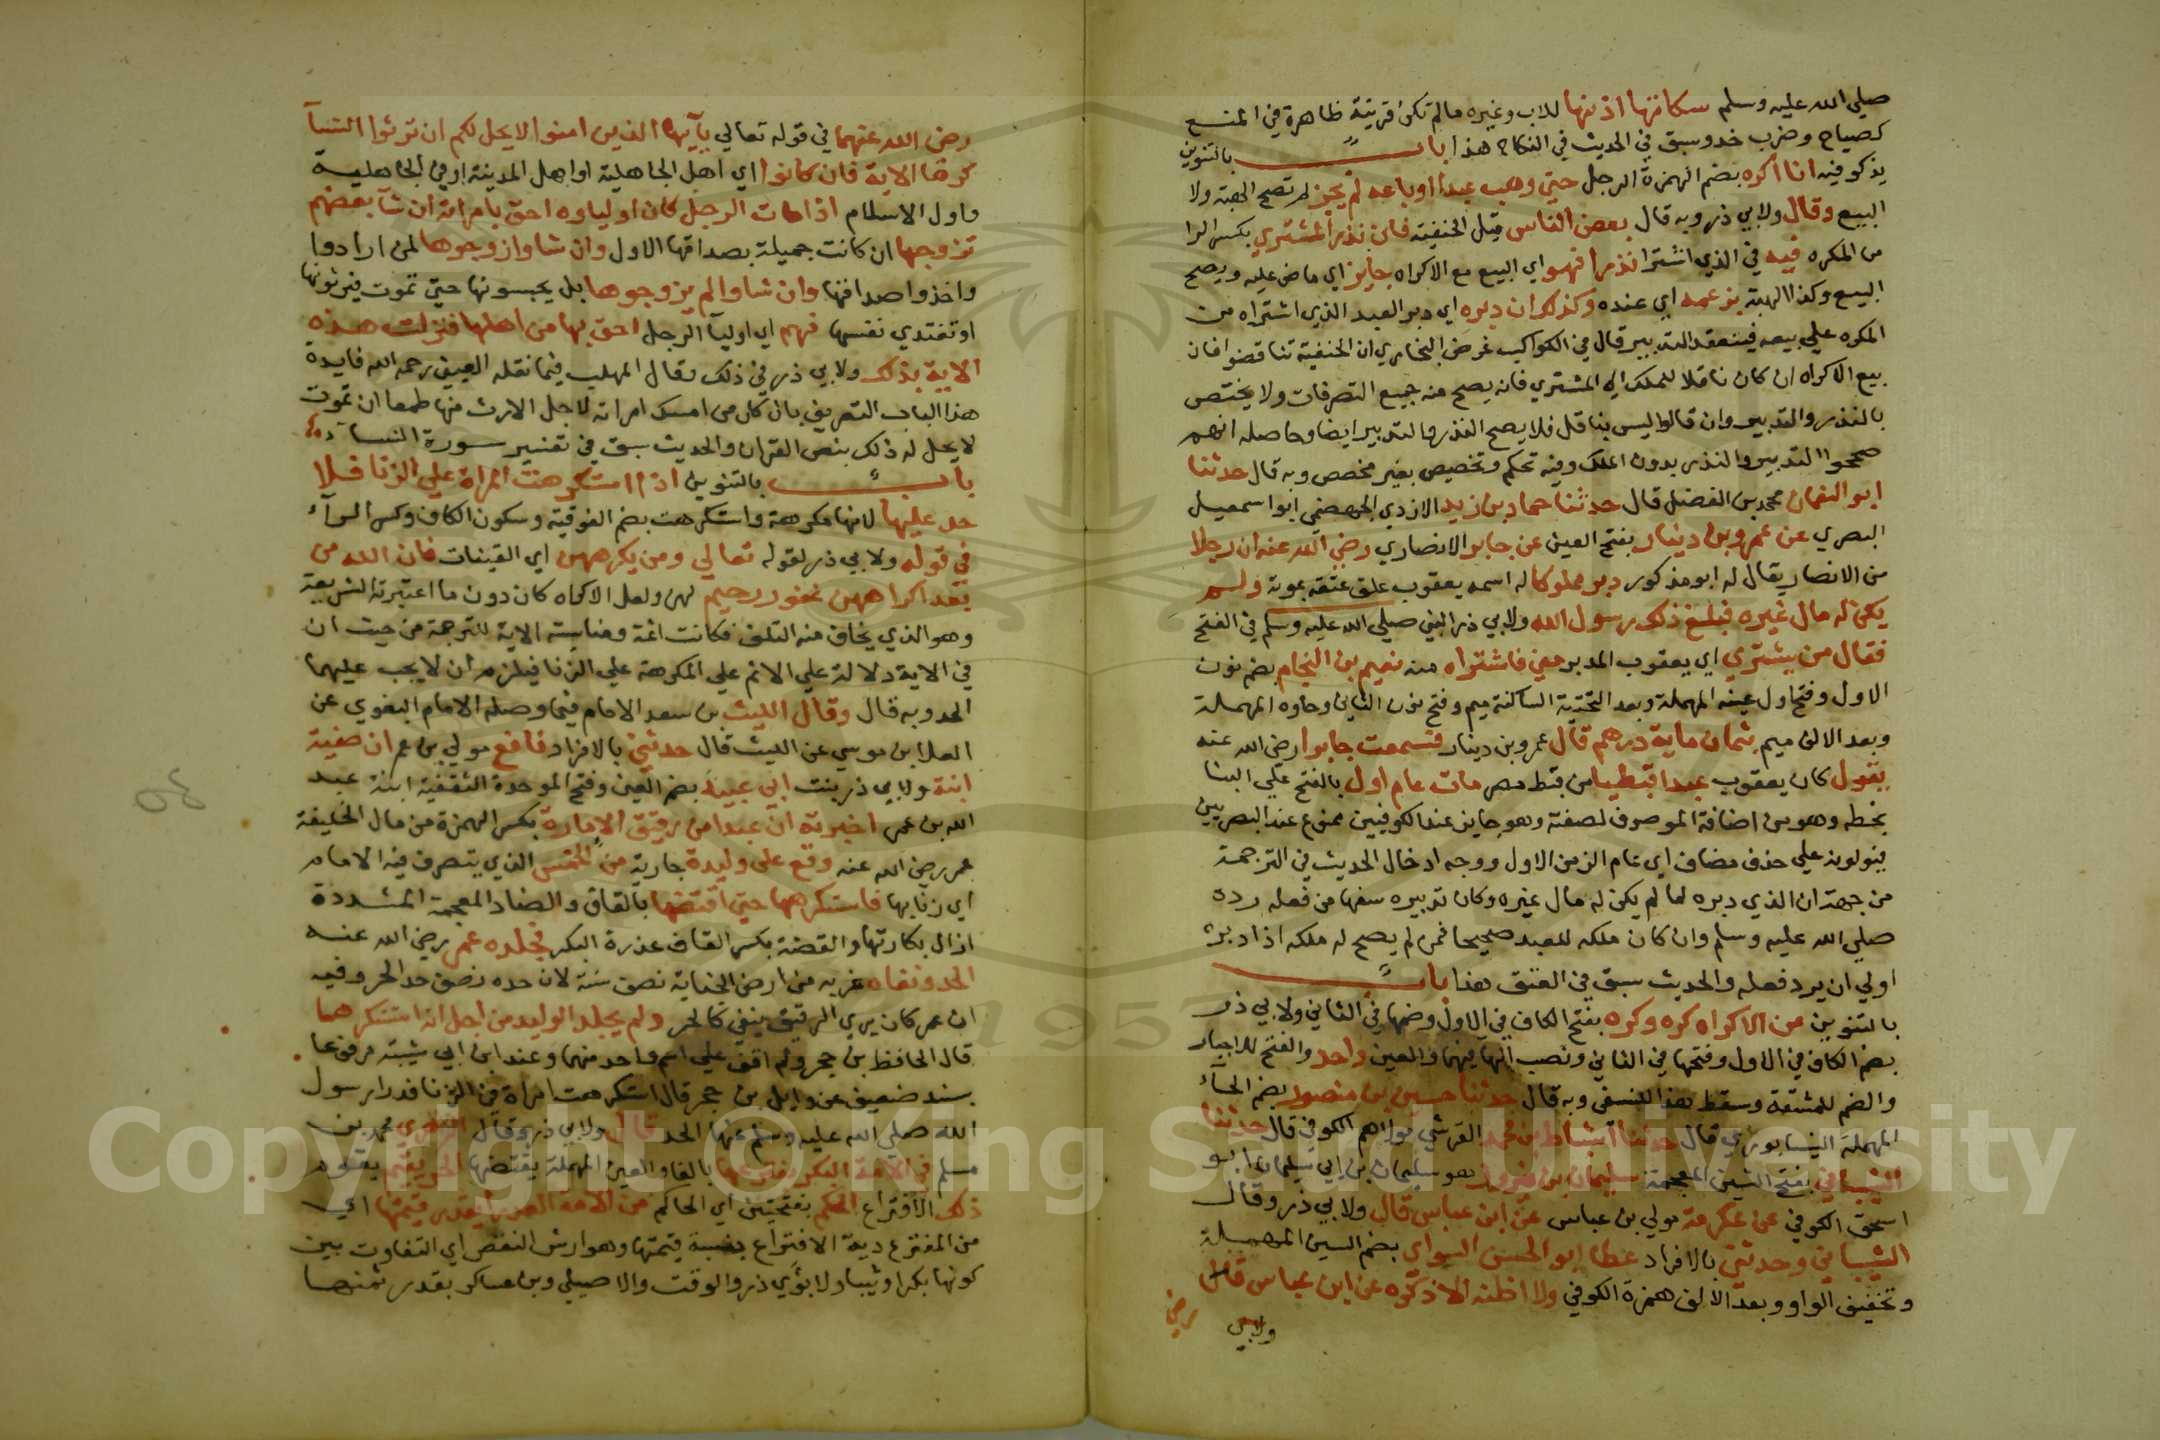 صلي الله عليه وسلم سكاتها اذنها للاب وغيره مالم تكن قرينة ظاهرة في المنع
كصياح وضرب خد وسبق في الحديث في النكاح هذا باب بالتنوين
يذكر فيه اذا اكره بضم الهمزة الرجل حتي وهب عبدا اوباعه لم يجز لم تصح الهبة ولا
البيع وقال ولابي ذر وبه قال بعض الناس قيل الحنفية فان نذر المشتري بكسر الرا
من المكره فيه في الذي اشترا نذرا فهو اي البيع مع الاكراه جايز اي ماض عليه ويصح
البيع وكذا الهبة بزعمه اي عنده وكذلك ان دبره اي دبر العبد الذي اشتراه من
المكره علي بيعه فينعقد التدبير قال في الكواكب غرض البخاري ان الحنفية تناقضوا فان
بيع الاكراه ان كان ناقلا للملك الي المشتري فانه يصح منه جميع التصرفات ولا يختص
بالنذر والتدبير وان قالوا ليس بناقل فلا يصح النذر والتدبير ايضا وحاصله انهم
صححوا التدبير والنذر بدون الملك وفيه تحكم وتخصيص بغير مخصص وبه قال حدثنا
ابو النعمان محمد بن الفضل قال حدثنا حماد بن زيد الازدي الجهضمي ابو اسمعيل
البصري عن عمرو بن دينار بفتح العين عن جابر الانصاري رضي الله عنه ان رجلا
من الانصار يقال له ابو مذكور دبر مملوكا له اسمه يعقوب علق عتقه بموته ولم
يكن له مال غيره فبلغ ذلك رسول الله ولابي ذر النبي صلي الله عليه وسلم في الفتح
فقال من يشتري اي يعقوب المدبر مني فاشتراه منه نعيم بن النحام بضم نون
الاول وفتح اول عينه المهملة وبعد التحتية الساكنة ميم وفتح نون الثاني وحاوه المهملة
وبعد الالف ميم بثمان ماية درهم قال عمرو بن دينار فسمعت جابرا رضي الله عنه
يقول كان يعقوب عبدا قبطيا من قبط مصر مات عام اول بالفتح علي البنا
بخطه وهو من اضافة الموصوف لصفته وهو جايز عند الكوفيين ممنوع عند البصريين
فيولونه علي حذف مضاف اي عام الزمن الاول ووجه ادخال الحديث في الترجمة
من جهة ان الذي دبره لما لم يكن له مال غيره وكان تدبيره سفها من فعله رده
صلي الله عليه وسلم وان كان ملكه للعبد صحيحا فمن لم يصح له ملكه اذا دبره
اولي ان يرد فعله والحديث سبق في العتق هذا باب
بالتنوين من الاكراه كره وكره بفتح الكاف في الاول وضمها في الثاني ولابي ذر
بضم الكاف في الاول وفتحها في الثاني ونصب الها فيهما والمعني واحد والفتح للاجبار
والضم للمشقة وسقط هذا للنسفي وبه قال حدثنا حسين بن منصور بضم الحاء
المهملة النيسابوري قال حدثنا اسباط بن محمد القرشي مولاهم الكوفي قال حدثنا
الشيباني بفتح الشين المعجمة سليمان بن فيروز هو سليمان بن ابي سليمان ابو
اسحق الكوفي عن عكرمة مولي بن عباس عن ابن عباس قال ولابي ذر وقال
الشيباني وحدثني بالافراد عطا ابو الحسن السوايي بضم السين المهملة
وتخفيف الواو وبعد الالف همزة الكوفي ولا اظنه الا ذكره عن ابن عباس قال
ولابي
رضي
رضي الله عنهما في قوله تعالي يأيها الذين امنوا لا يحل لكم ان ترثوا النساء
كرها الاية قال كانوا اي اهل الجاهلية او اهل المدينة او في الجاهلية
واول الاسلام اذا مات الرجل كان اولياوه احق بامراته ان شاء بعضهم
تزوجها ان كانت جميلة بصداقها الاول وان شاوا زوجوها لمن ارادوا
واخذوا صداقها وان شاوا لم يزوجوها بل يحبسونها حتي تموت فيرثونها
او تفتدي نفسها فهم اي اوليا الرجل احق بها من اهلها فنزلت هذه
الاية بذلك ولابي ذر في ذلك وقال المهلب فيما نقله العيني رحمه الله فايدة
هذا الباب التعريف بان كل من امسك امراته لاجل الارث منها طمعا ان تموت
لا يحل له ذلك بنص القران والحديث سبق في تفسير سورة النساء
باب بالتنوين اذا استكرهت المراة علي الزنا فلا
حد عليها لانها مكرهة واستكرهت بضم الفوقية وسكون الكاف وكسر الراء
في قوله ولابي ذر لقوله تعالي ومن يكرههن اي الفتيات فان الله من
بعد اكراههن غفور رحيم لهن ولعل الاكراه كان دون ما اعتبرته الشريعة
وهو الذي يخاف منه التلف فكانت اثمة ومناسبة الاية للترجمة من حيث ان
في الاية دلالة علي الاثم علي المكرهة علي الزنا فيلزم ان لا يجب عليهما
الحد وبه قال وقال الليث بن سعد الامام فيما وصله الامام البغوي عن
العلا بن موسي عن الليث قال حدثني بالافراد نافع مولي بن عمر ان صفية
ابنة ولابي ذر بنت ابي عبيد بضم العين وفتح الموحدة الثقفية ابنة عبد
الله بن عمر اخبرته ان عبدا من رقيق الامارة بكسر الهمزة من مال الخليفة
عمر رضي الله عنه وقع علي وليدة جارية من الخمس الذي يتصرف فيه الامام
اي زنا بها فاستكرهها حتي اقتضها بالقاف والضاد المعجمة المشددة
ازال بكارتها والقضة بكسر القاف عذرة البكر فجلده عمر رضي الله عنه
الحد ونفاه غربه من ارض الجناية نصف سنة لان حده نصف حد الحر وفيه
ان عمر كان يري الرقيق ينفي كالحر ولم يجلد الوليد من اجل انه استكرهها
قال الحافظ بن حجر ولم اقف علي اسم واحد منهما وعند ابن ابي شيبة مرفوعا
بسند ضعيف عن وايل بن حجر قال استكرهت امراة في الزنا فدرا رسول
الله صلي الله عليه وسلم عنها الحد قال ولابي ذر وقال الزهري محمد بن
مسلم في الامة البكر يفترعها بالفا والعين المهملة يقتضها الحر يقيم يقوم
ذلك الافتراع الحكم بفتحتين اي الحاكم من الامة العذرا بقدر قيمتها اي
من المفترع دية الافتراع بنسبة قيمتها وهو ارش النقص اي التفاوت بين
كونها بكرا وثيبا ولابوي ذر والوقت والاصيلي وبن عساكر بقدر ثمنها
Copyright © King Saud University
1957